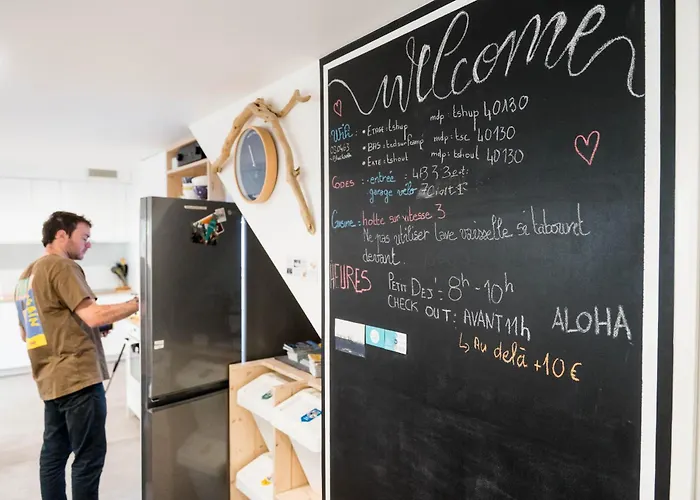 Welcome
Wifi : • ETAGE : tshup mdp : tshup 40130
• BAS : tsc mdp : tsc 40130
• EXTE : tshout mdp : tshout 40130
CODES : - entrée :
garage vélo
Cuisine : hotte sur vitesse 3
Ne pas utiliser lave vaisselle si tabouret
devant.
HEURES
PETIT DEJ' : 8h - 10h
CHECK OUT : AVANT 11h
↳ Au delà +10€
ALOHA